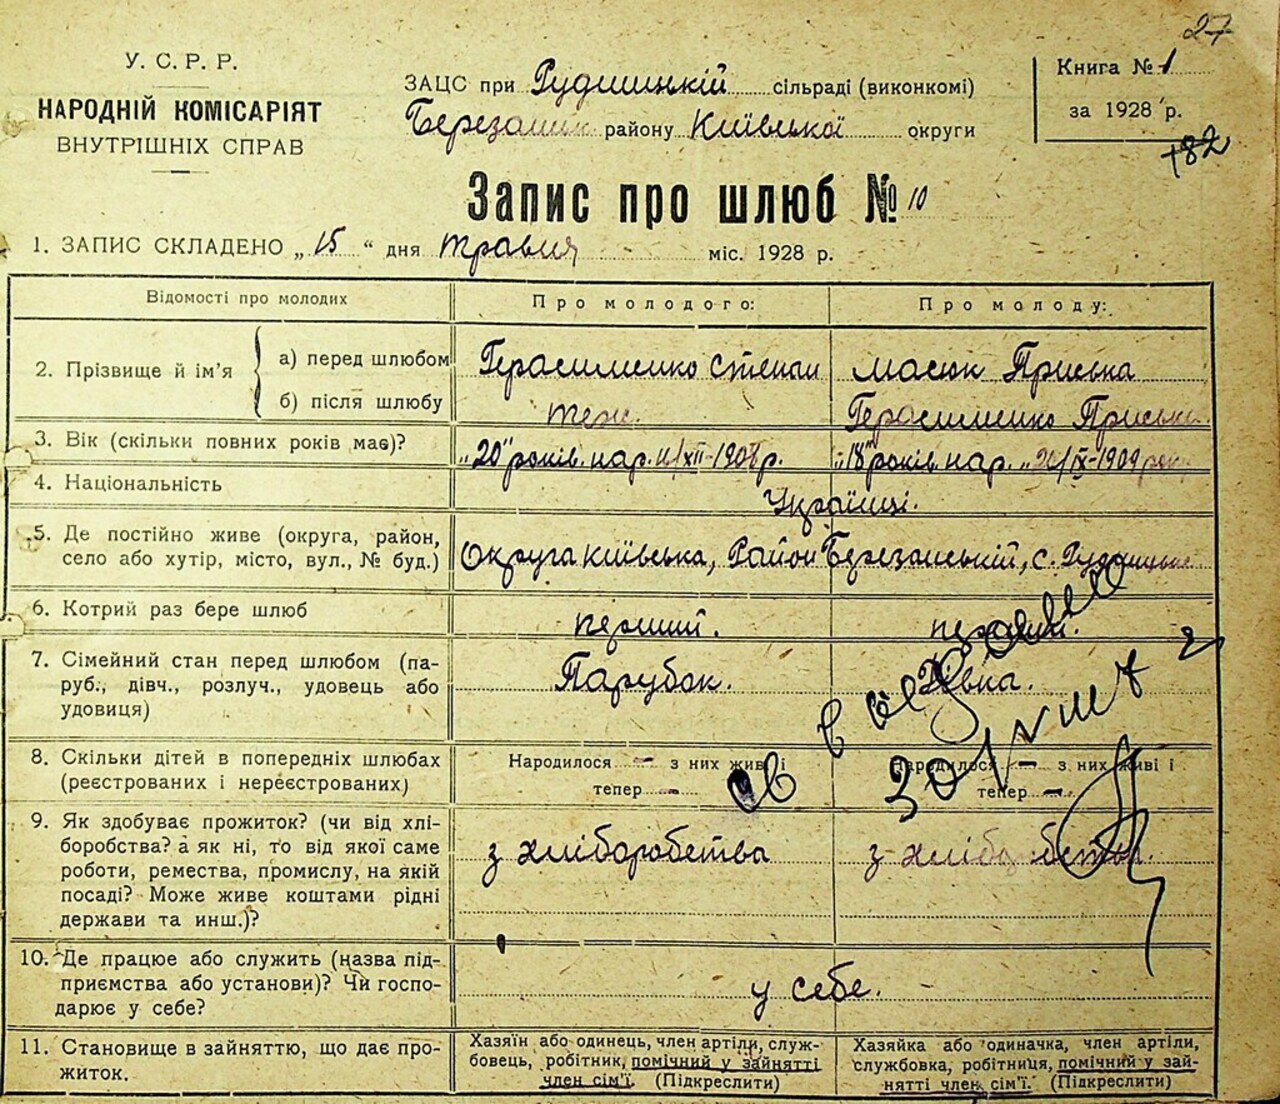 27
У. С. Р. Р.
НАРОДНІЙ КОМІСАРІЯТ
ВНУТРІШНІХ СПРАВ
ЗАЦС при Рудницкій сільраді (виконкомі)
Березанськ району Київської округи
Книга № 1
за 1928 р.
182
Запис про шлюб № 10
1. ЗАПИС СКЛАДЕНО „ 15 “ дня травня міс. 1928 р.
Відомості про молодих
Про молодого:
Про молоду:
2. Прізвище й ім'я
а) перед шлюбом
Герасименко Степан
Масюк Приська
б) після шлюбу
теж.
Герасименко Приська
3. Вік (скільки повних років має)?
„20“ років. нар. /XII-1907 р.
„18“ років нар. /IX-1909 року
4. Національність
Українці.
5. Де постійно живе (округа, район,
село або хутір, місто, вул., № буд.)
Округа Київська, Район Березанський, с. Рудницьке
6. Котрий раз бере шлюб
перший.
перший.
7. Сімейний стан перед шлюбом (па-
руб., дівч., розлуч., удовець або
удовиця)
Парубок.
Дівка.
8. Скільки дітей в попередніх шлюбах
(реєстрованих і нереєстрованих)
Народилося – з них живі і
тепер –
Народилося – з них живі і
тепер –
9. Як здобуває прожиток? (чи від хлі-
боробства? а як ні, то від якої саме
роботи, ремества, промислу, на якій
посаді? Може живе коштами рідні
держави та инш.)?
з хліборобства
з хліборобства.
10. Де працює або служить (назва під-
приємства або установи)? Чи госпо-
дарює у себе?
у себе.
11. Становище в зайняттю, що дає про-
житок.
Хазяїн або одинець, член артіли, служ-
бовець, робітник, помічний у зайнятті
член сім'ї. (Підкреслити)
Хазяйка або одиначка, член артіли,
службовка, робітниця, помічний у зай-
нятті член сім'ї. (Підкреслити)